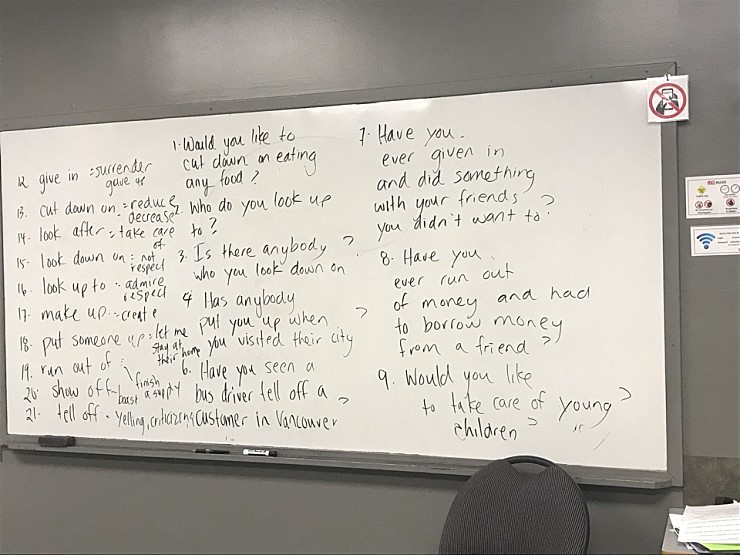 12. give in = surrender
gave up
13. cut down on = reduce,
decrease
14. look after = take care
of
15. look down on = not
respect
16. look up to = admire
respect
17. make up = create
18. put someone up = let me
stay at
their home
19. run out of =
finish
a supply
20. show off - boast
21. tell off = yelling, criticizing
1. Would you like to
cut down on eating
any food?
2. Who do you look up
to?
3. Is there anybody
who you look down on?
4. Has anybody
put you up when
you visited their city?
6. Have you seen a
bus driver tell off a
customer in Vancouver?
7. Have you
ever given in
and did something
with your friends
you didn't want to?
8. Have you
ever run out
of money and had
to borrow money
from a friend?
9. Would you like
to take care of young
children?